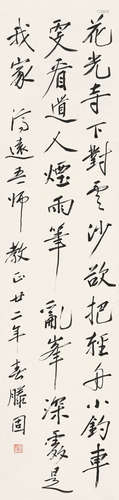 花光寺下對雲沙欲把輕舟小釣車
更看道人煙雨筆亂峯深處是
我家 濟遠吾師教正廿二年春滕固